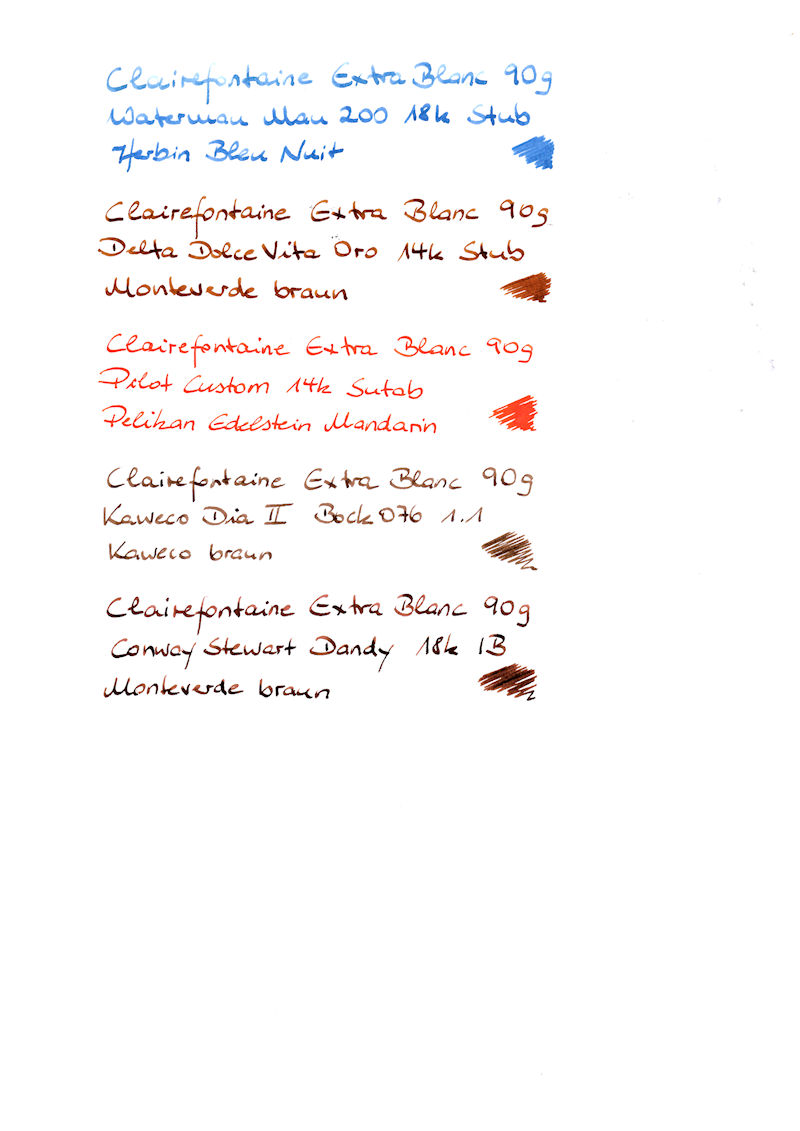 Clairefontaine Extra Blanc 90g
Waterman Man 200 18k Stub
Herbin Bleu Nuit
Clairefontaine Extra Blanc 90g
Delta Dolce Vita Oro 14k Stub
Monteverde braun
Clairefontaine Extra Blanc 90g
Pilot Custom 14k Sutab
Pelikan Edelstein Mandarin
Clairefontaine Extra Blanc 90g
Kaweco Dia II Bock 076 1.1
Kaweco braun
Clairefontaine Extra Blanc 90g
Conway Stewart Dandy 18k IB
Monteverde braun